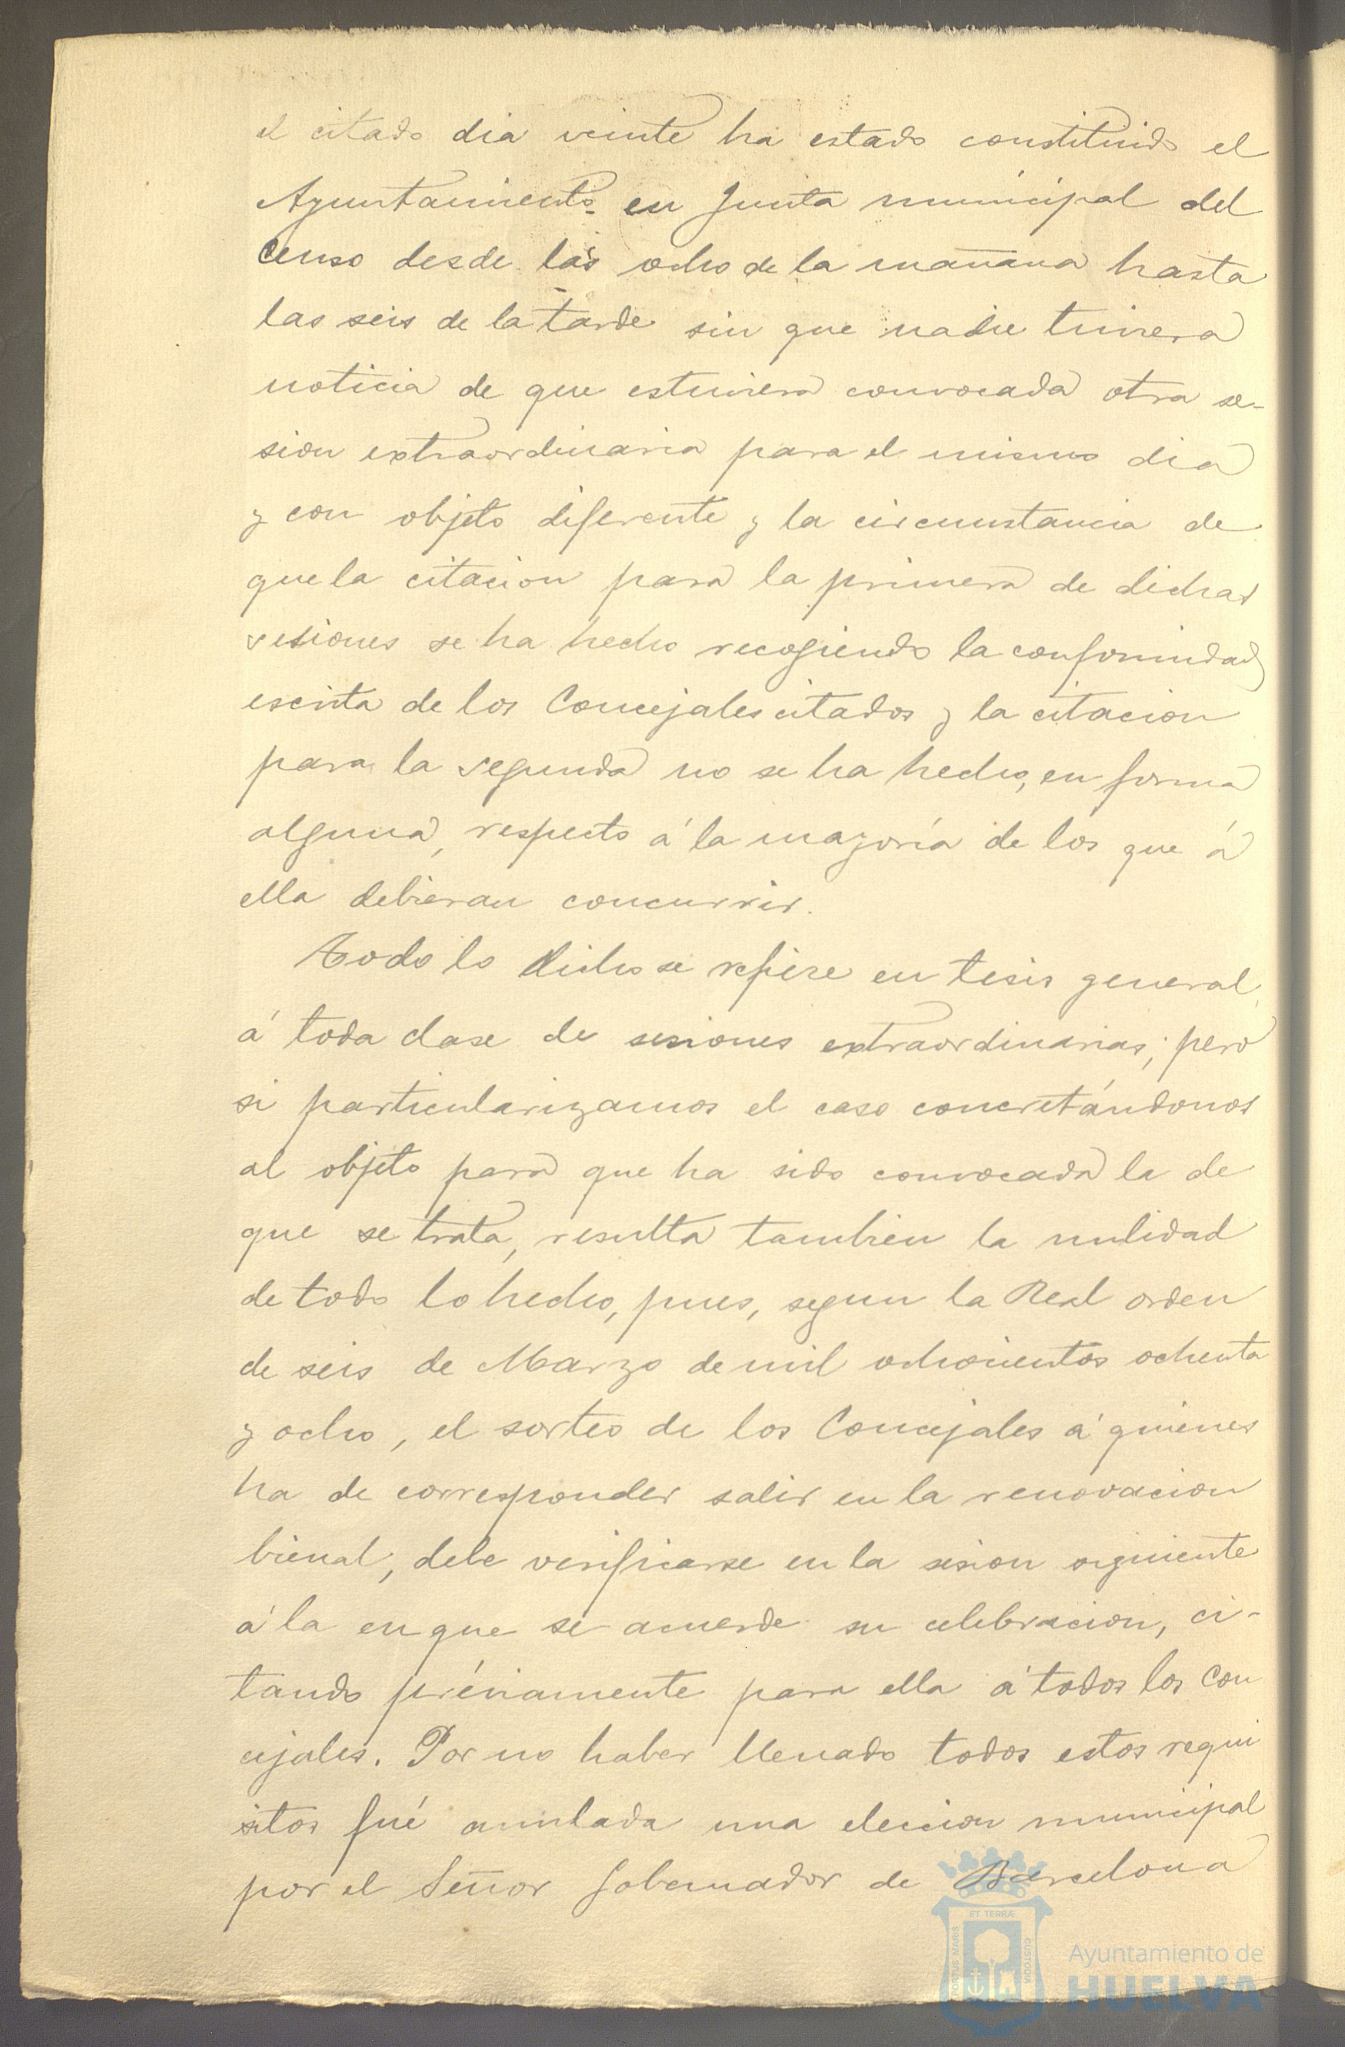 el citado dia veinte ha estado constituido el
Ayuntamiento en Junta municipal del
Censo desde las ocho de la mañana hasta
las seis de la tarde sin que nadie tuviera
noticia de que estuviera convocada otra se-
sion extraordinaria para el mismo dia
y con objeto diferente y la circunstancia de
que la citacion para la primera de dichas
sesiones se ha hecho recogiendo la conformidad
escrita de los Concejales citados y la citacion
para la segunda no se ha hecho, en forma
alguna, respecto á la mayoría de los que á
ella debieran concurrir.
Todo lo dicho se refiere en tesis general,
á toda clase de sesiones extraordinarias; pero
si particularizamos el caso concretándonos
al objeto para que ha sido convocada la de
que se trata, resulta tambien la nulidad
de todo lo hecho, pues, segun la Real orden
de seis de Marzo de mil ochocientos ochenta
y ocho, el sorteo de los Concejales á quienes
ha de corresponder salir en la renovacion
bienal, debe verificarse en la sesion siguiente
á la en que se acuerde su celebracion, ci-
tando préviamente para ella á todos los Con
cejales. Por no haber llenado todos estos requi
sitos fué anulada una eleccion municipal
por el Señor Gobernador de Barcelona
PORTUS MARIS
ET TERRÆ
CUSTODIA
Ayuntamiento de
HUELVA